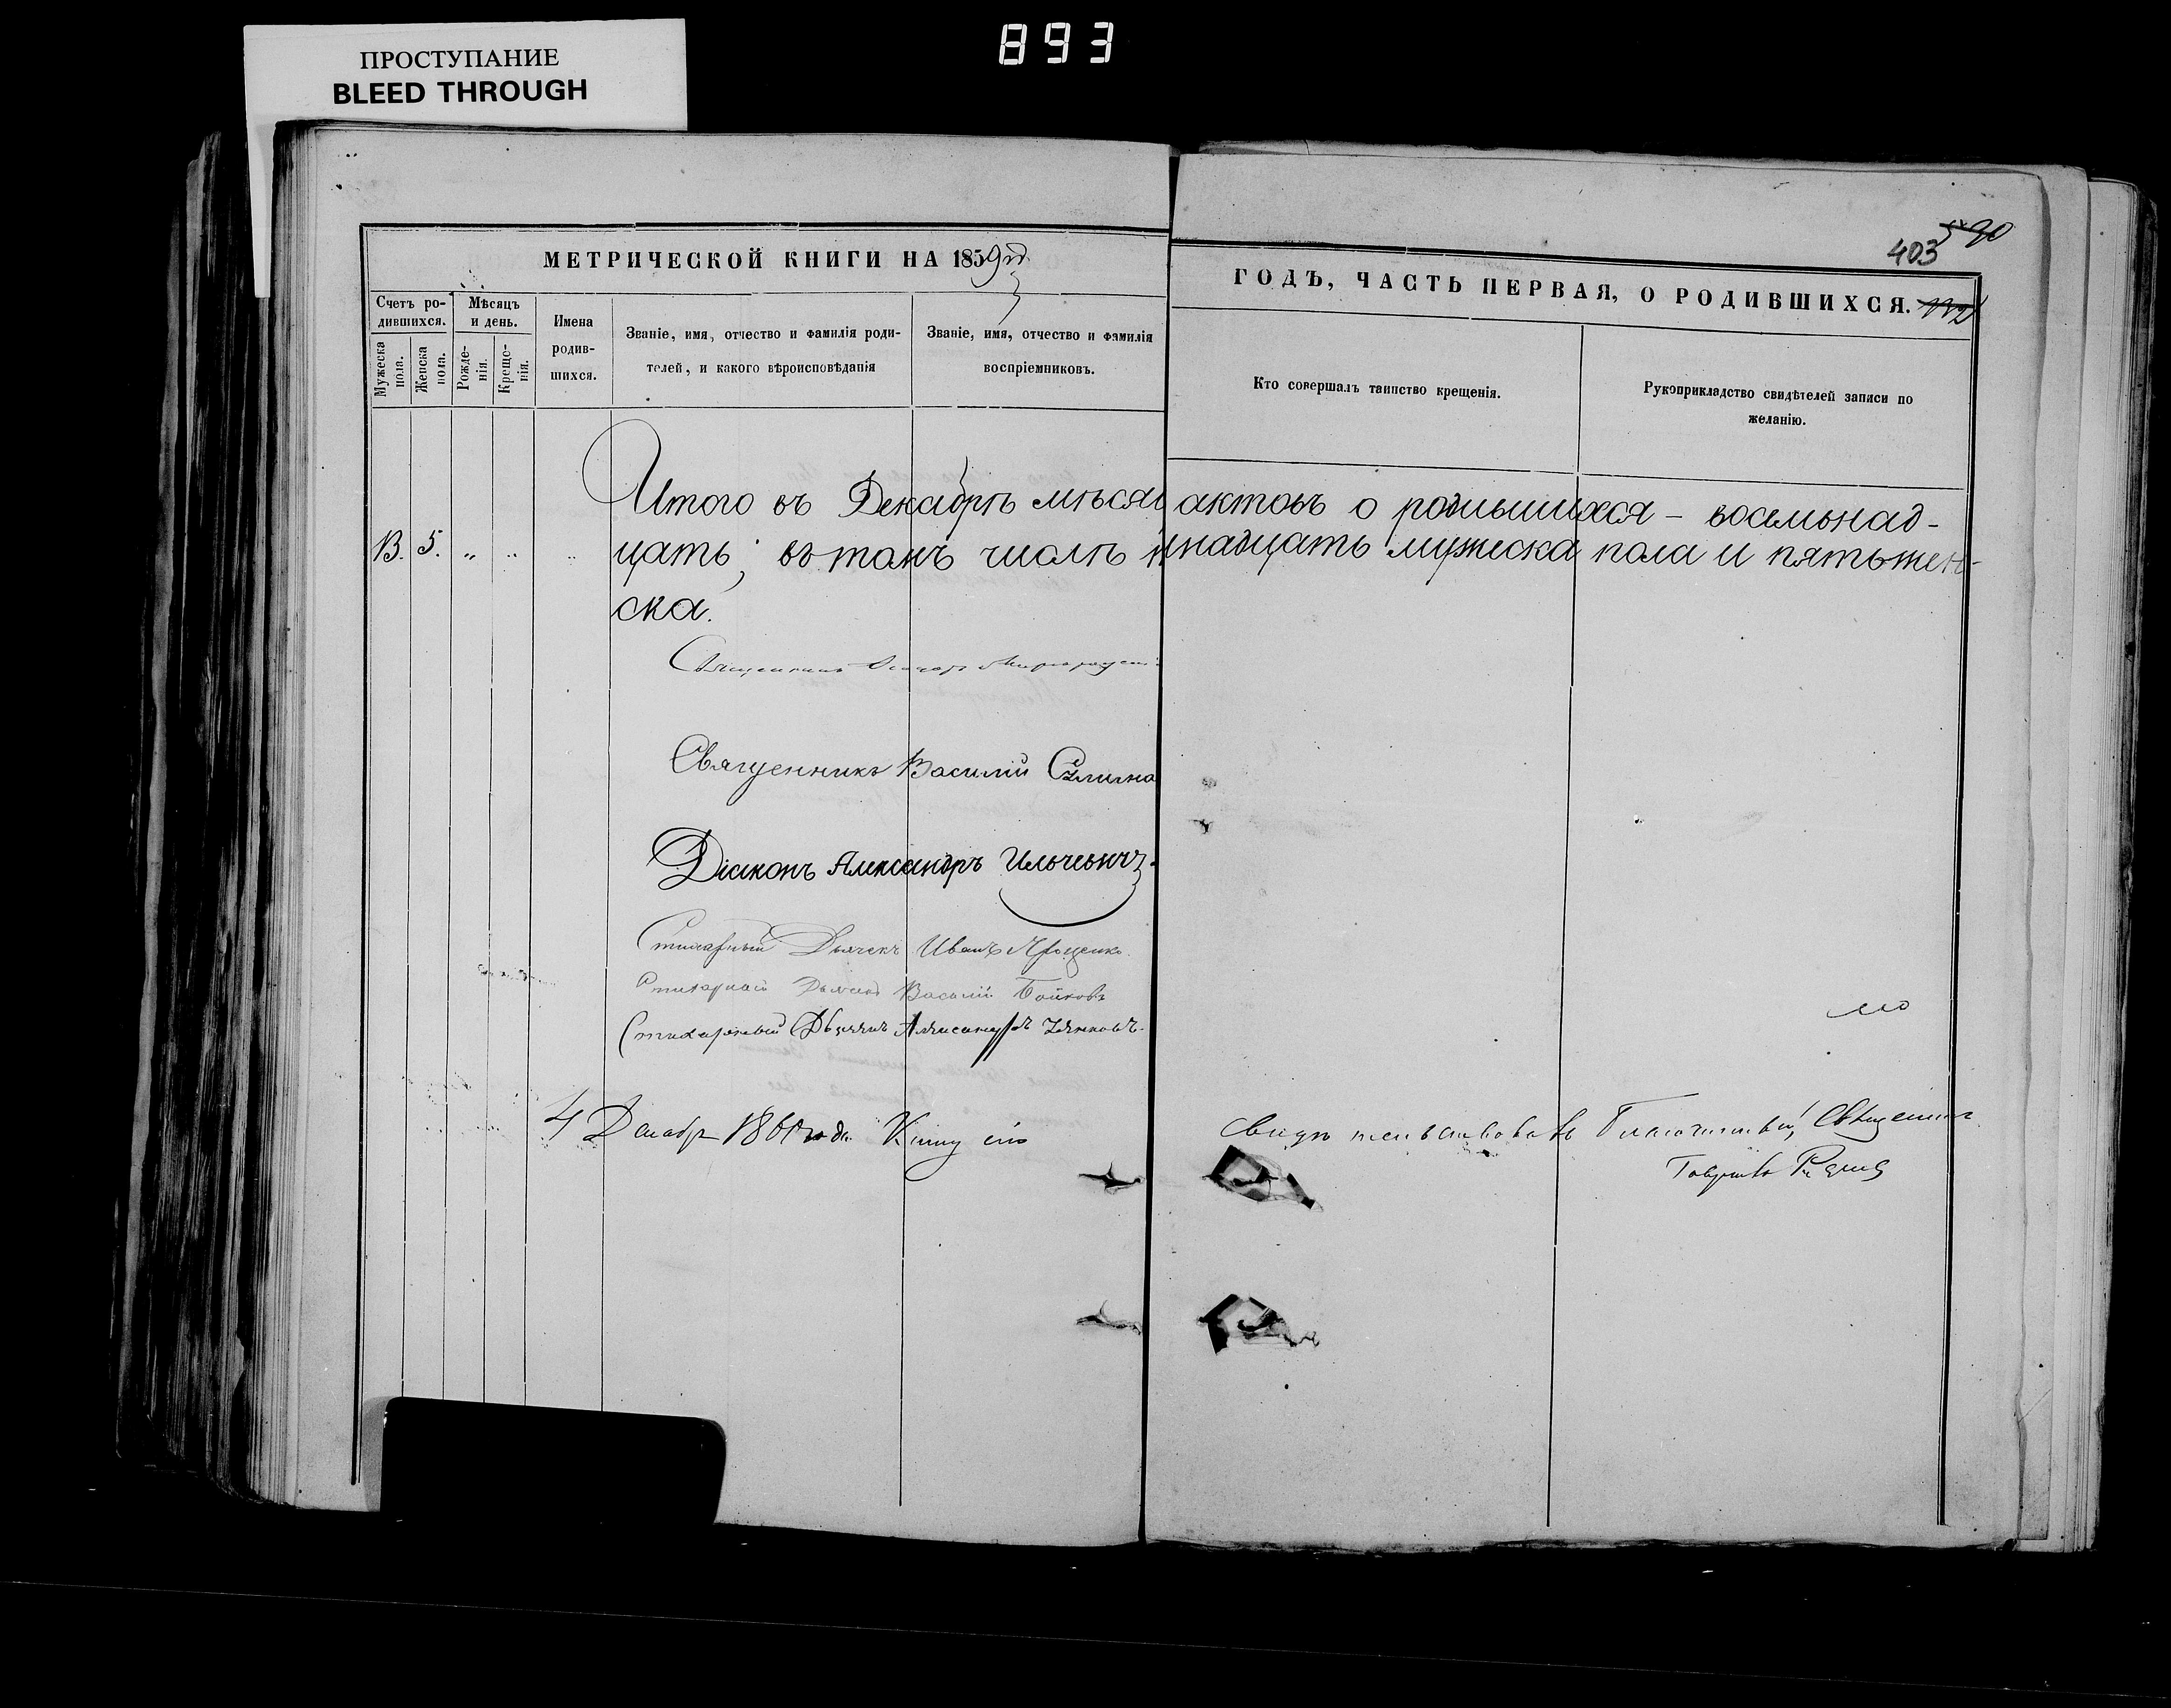 893
ПРОСТУПАНИЕ
BLEED THROUGH
590
403
МЕТРИЧЕСКОЙ КНИГИ НА 1859й
ГОДЪ, ЧАСТЬ ПЕРВАЯ, О РОДИВШИХСЯ.
Счетъ ро-
дившихся.
Мѣсяцъ
и день.
Мужеска
пола.
Женска
пола.
Рожде-
нія.
Креще-
нія.
Имена
родив-
шихся.
Званіе, имя, отчество и фамилія роди-
телей, и какого вѣроисповѣданія
Званіе, имя, отчество и фамилія
воспріемниковъ.
Кто совершалъ таинство крещенія.
Рукоприкладство свидѣтелей записи по
желанію.
Итого въ Декабрѣ мѣсяц актовъ о родившихся – восемьнад-
13. 5. „ „ „ цать; въ томъ числѣ надцать мужеска пола и пять жен-
ска.
Священникъ
Священникъ Василій
Діаконъ Александръ Ильчевичъ.
Стихарный Дьячекъ Иванъ Яроценко
Стихарный Дьячекъ Василій Бойковъ
Стихарный Александръ
4 Декабр года Книгу сію свидѣтельствовалъ Благочинный, Священникъ